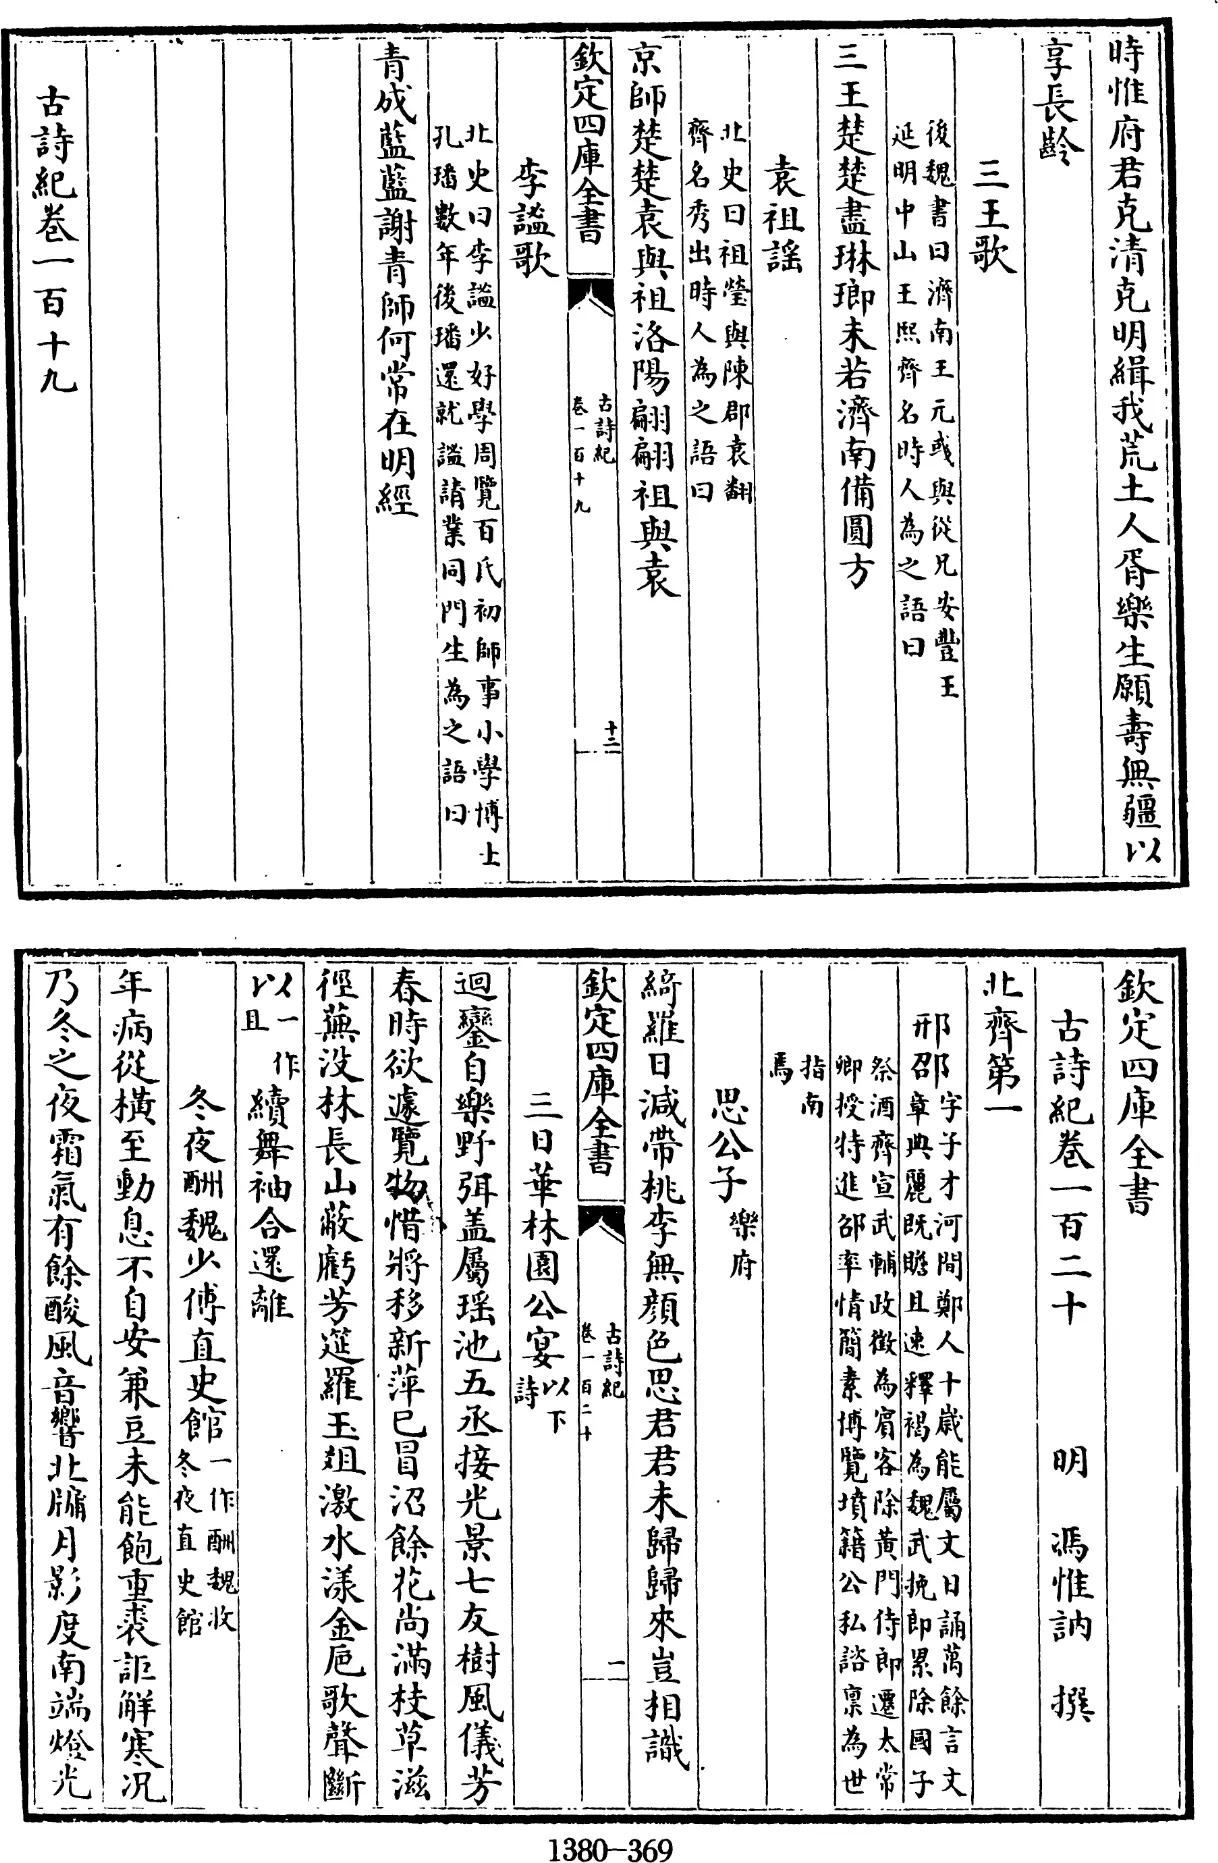 時惟府君克清克明緝我荒土人胥樂生願壽無疆以
享長齡
三王歌
後魏書曰濟南王元彧與從兄安豐王
延明中山王熙齊名時人為之語曰
三王楚楚盡琳瑯未若濟南備圓方
袁祖謡
北史曰祖瑩與陳郡袁翻
齊名秀出時人為之語曰
京師楚楚袁與祖洛陽翩翩祖與袁
欽定四庫全書
古詩紀
卷一百十九
十二
李謐歌
北史曰李謐少好學周覽百氏初師事小學博士
孔璠數年後璠還就謐請業同門生為之語曰
青成藍藍謝青師何常在明經
古詩紀卷一百十九
欽定四庫全書
古詩紀卷一百二十
明 馮惟訥 撰
北齊第一
邢邵
字子才河間鄭人十歲能屬文日誦萬餘言文
章典麗既贍且速釋褐為魏武挽郎累除國子
祭酒齊宣武輔政徵為賓客除黃門侍郎遷太常
卿授特進邵率情簡素博覽墳籍公私諮稟為世
指南
馬
思公子
樂府
綺羅日減帶桃李無顔色思君君未歸歸來豈相識
欽定四庫全書
古詩紀
卷一百二十
一
三日華林園公宴
以下
詩
迴鑾自樂野弭盖屬瑶池五丞接光景七友樹風儀芳
春時欲遽覽物惜將移新萍已冒沼餘花尚滿枝草滋
徑蕪没林長山蔽虧芳筵羅玉俎激水漾金巵歌聲斷
以
一作
且
續舞袖合還離
冬夜酬魏少傅直史館
一作酬魏收
冬夜直史館
年病從橫至動息不自安兼豆未能飽重裘詎解寒况
乃冬之夜霜氣有餘酸風音響北牖月影度南端燈光
1380-369